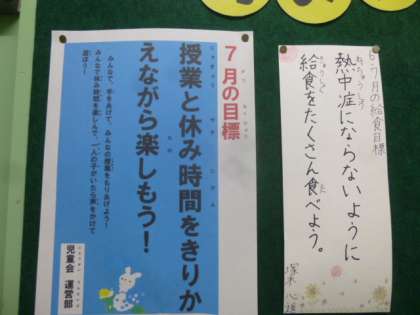 7月の目標
授業と休み時間をきりか
えながら楽しもう！
みんなで、手をあげて、みんなの授業をもりあげよう！
みんなで休み時間を楽しんで、一人の子がいたら声をかけて
遊ぼう！
児童会 運営部
6・7月の給食目標
熱中症にならないように
給食をたくさん食べよう。